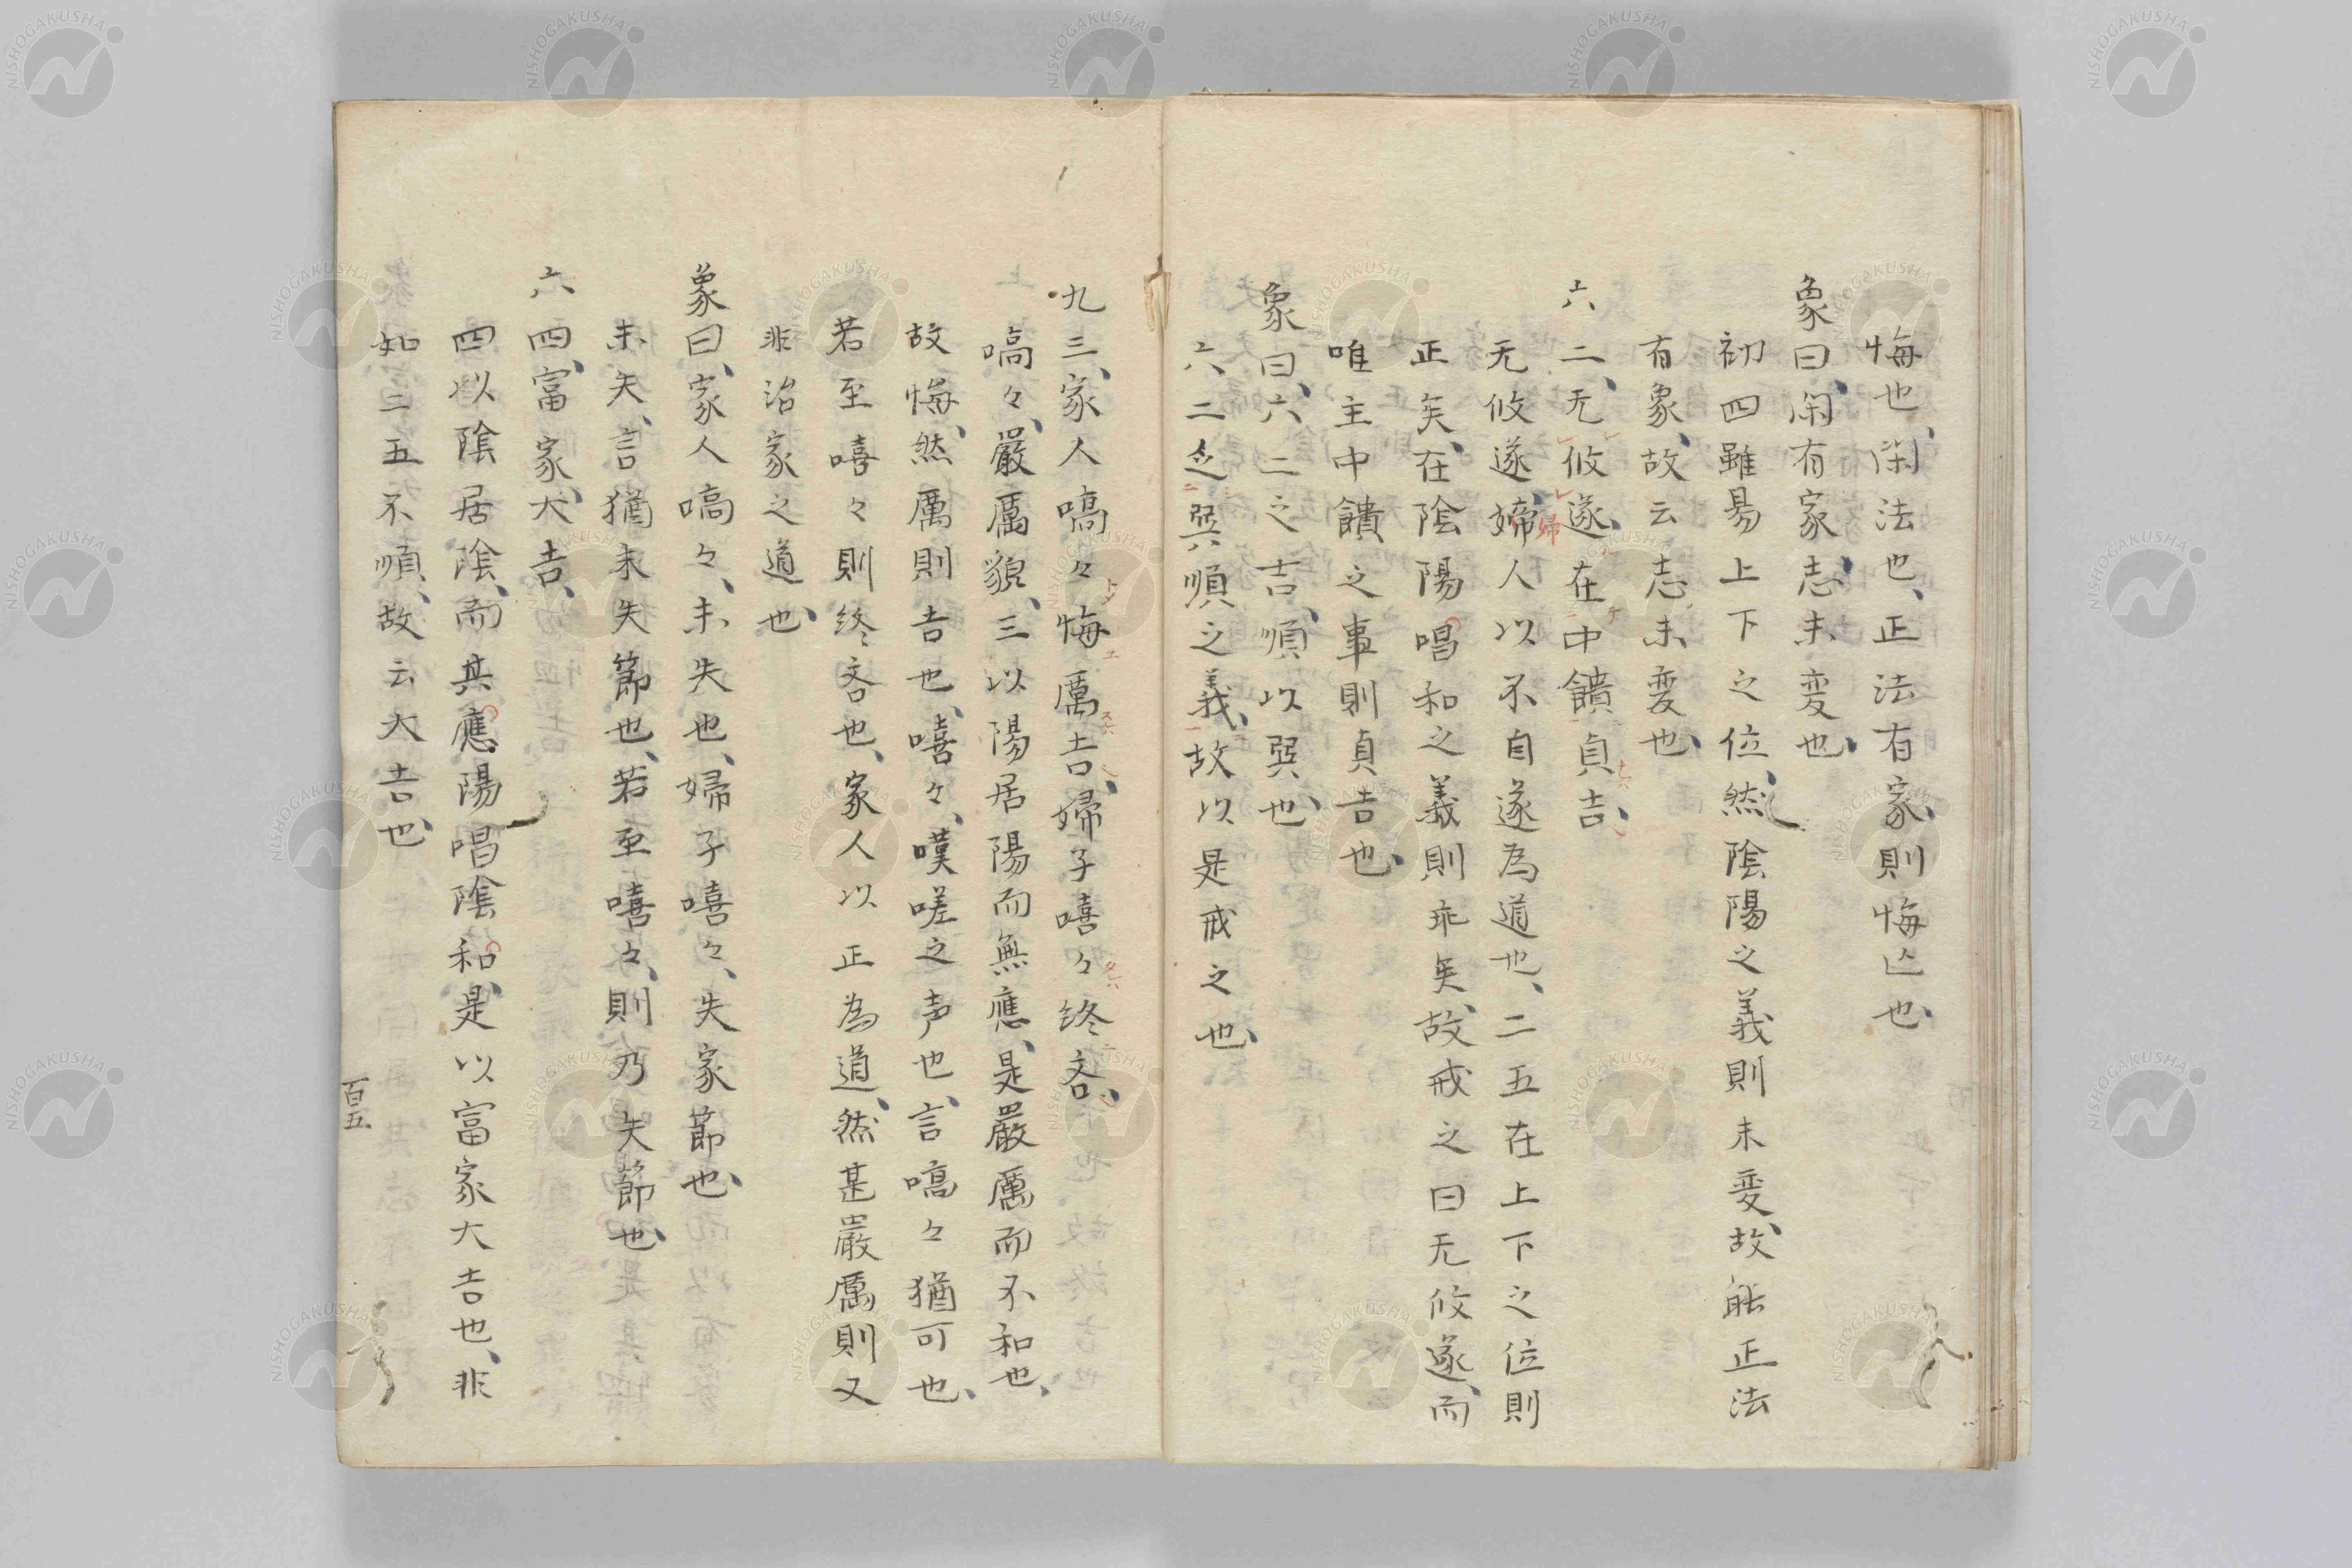 悔也、閑法也、正法有家、則悔亾也、
象曰、閑有家、志未変也、
初四雖易上下之位、然陰陽之義則未変、故能正法
有象、故云志未変也、
六二、无攸遂、在中饋、貞吉、
无攸遂、婦人以不自遂為道也、二五在上下之位則
正矣、在陰陽唱和之義則乖矣、故戒之曰无攸遂、而
唯主中饋之事則貞吉也、
象曰、六二之吉、順以巽也、
六二乏巽順之義、故以是戒之也、
九三、家人嗃々、悔厲吉、婦子嘻々、終吝、
嗃々、嚴厲貌、三以陽居陽而無應、是嚴厲而不和也、
故悔、然厲則吉也、嘻々、嘆嗟之声也、言嗃々猶可也、
若至嘻々則終吝也、家人以正為道、然甚嚴厲則又
非治家之道也、
象曰、家人嗃々、未失也、婦子嘻々、失家節也、
未矢、言猶未失節也、若至嘻々、則乃失節也、
六四、富家、大吉、
四以陰居陰、而其應陽唱陰和、是以富家大吉也、非
如二五不順、故云大吉也、
百五
NISHOGAKUSHA